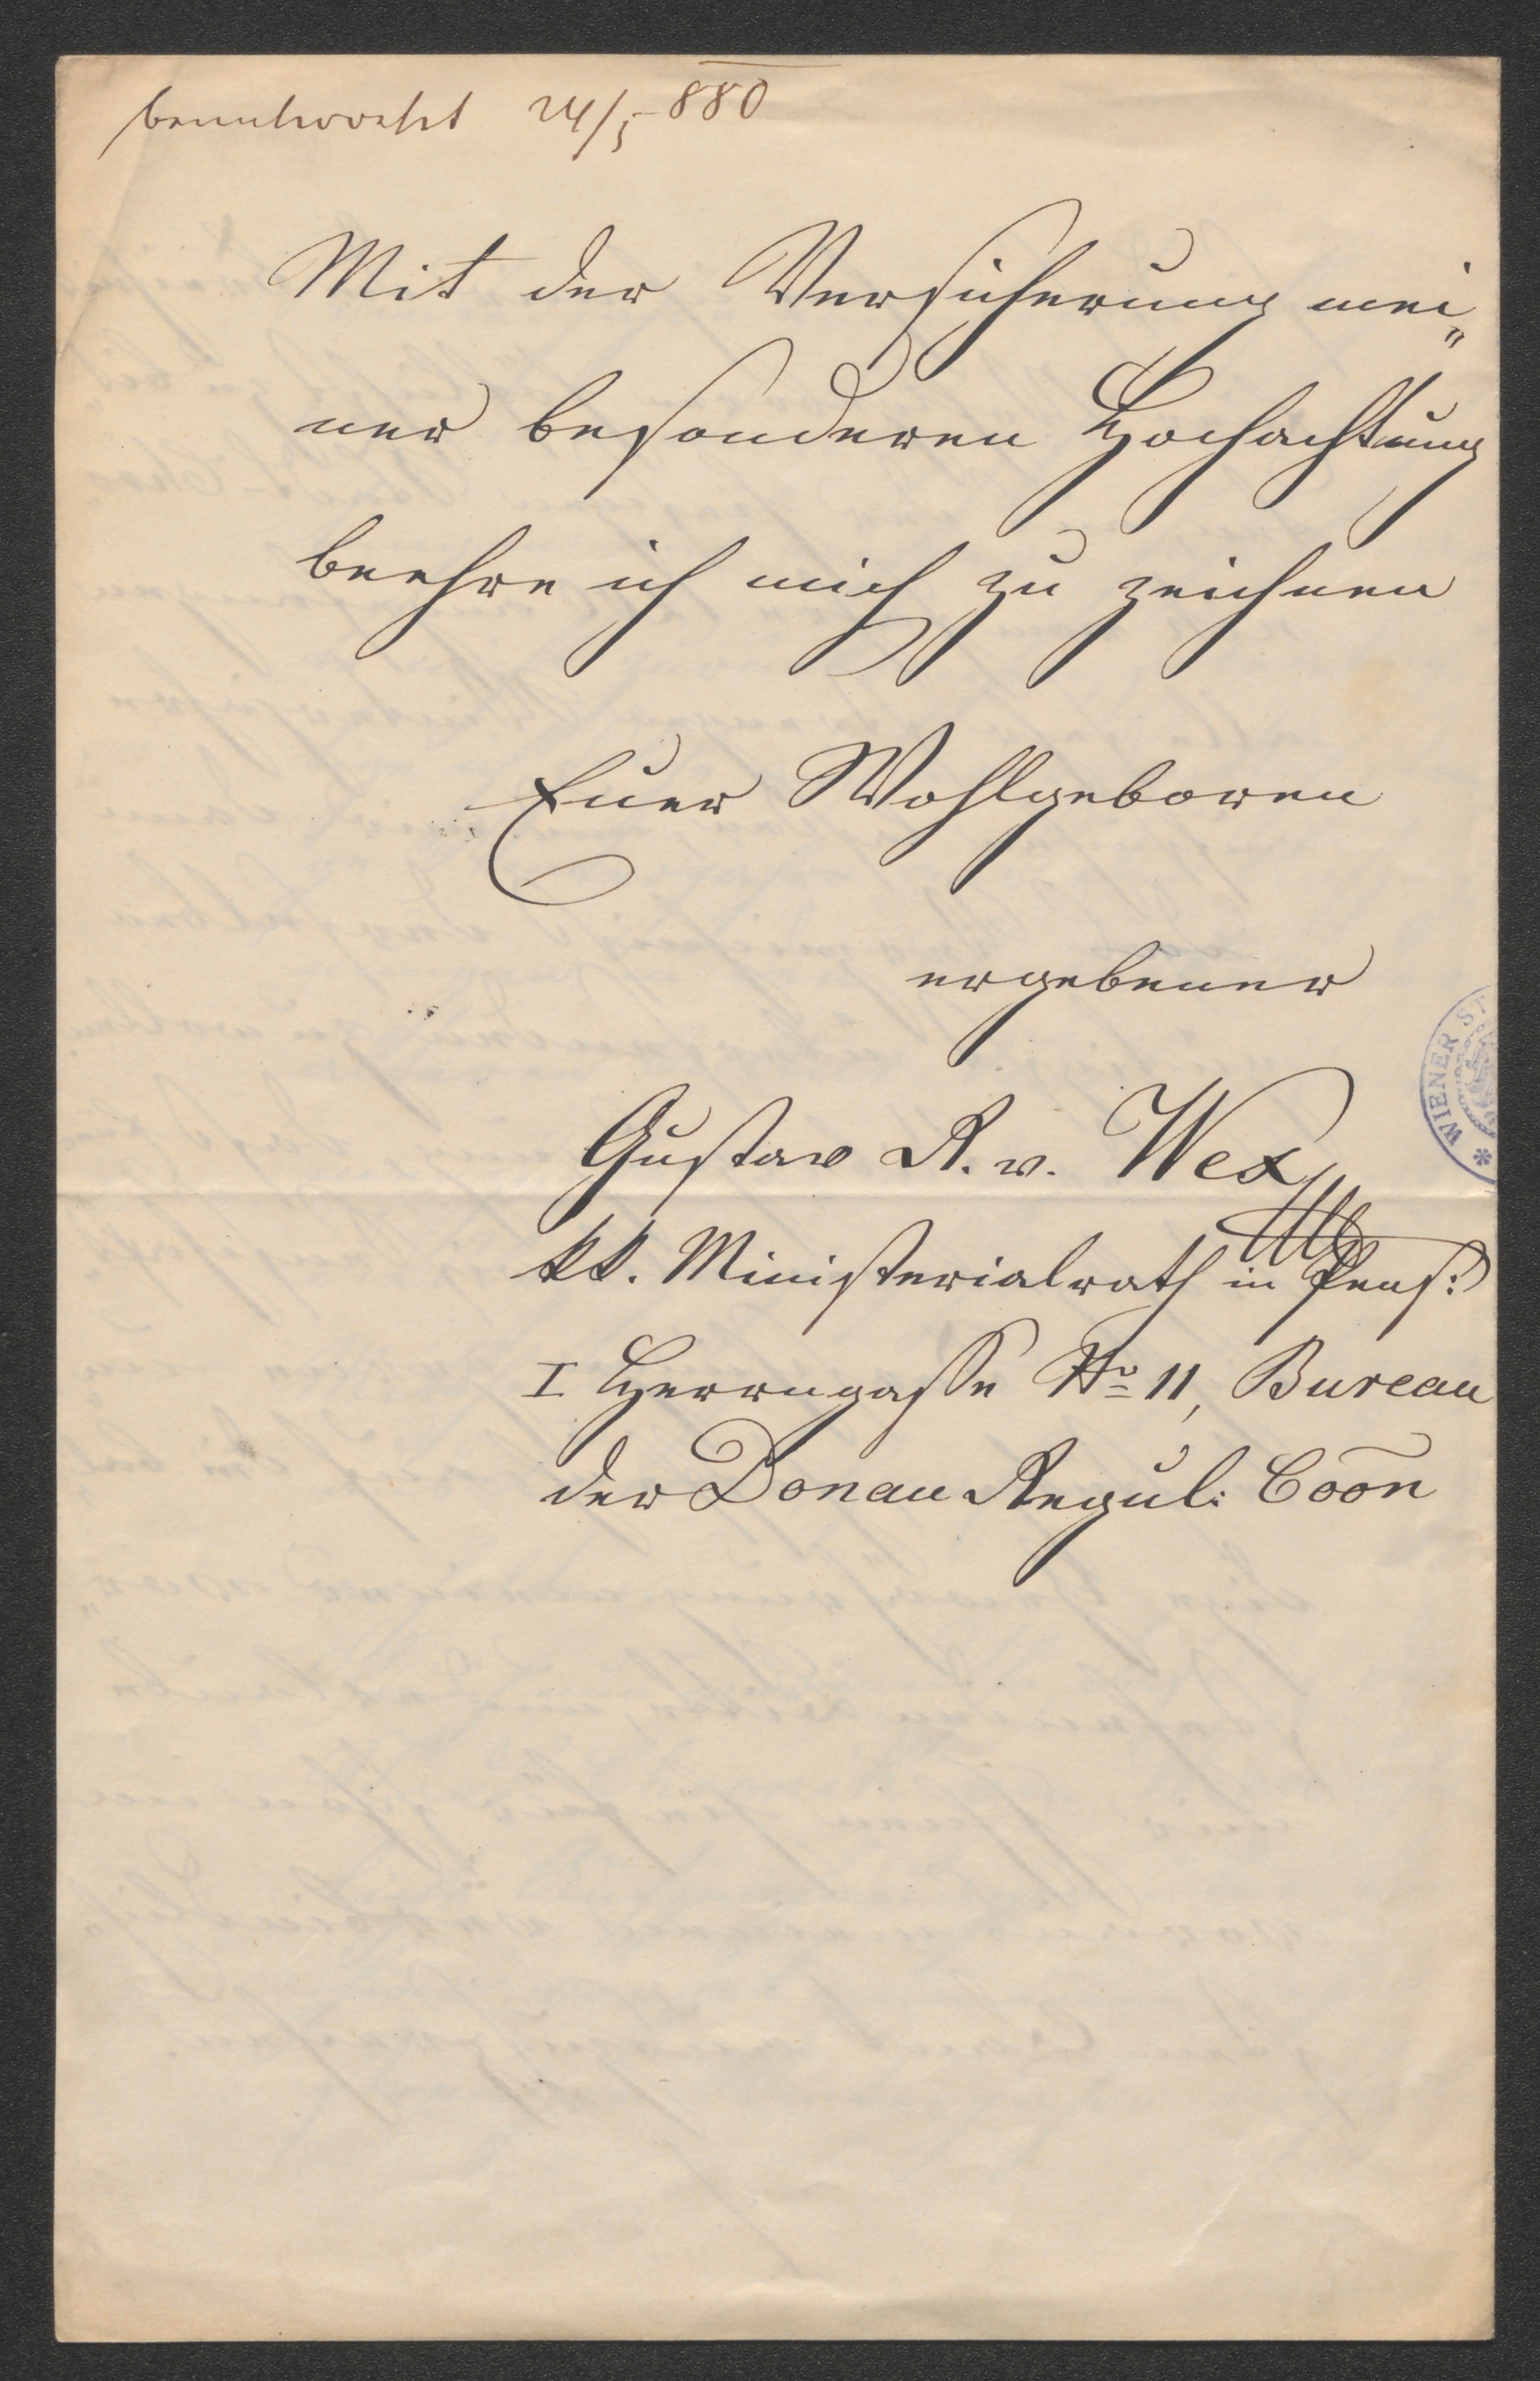 beantwortet 24/5 880
Mit der Versicherung mei„
ner besonderen Hochachtung
beehre ich mich zu zeichnen
Euer Wohlgeboren
ergebener
WIENER ST
Gustav R. v. Wex
kk. Ministerialrath in Pens:
I Herrngasse No 11, Bureau
der Donau Regul: Coōn